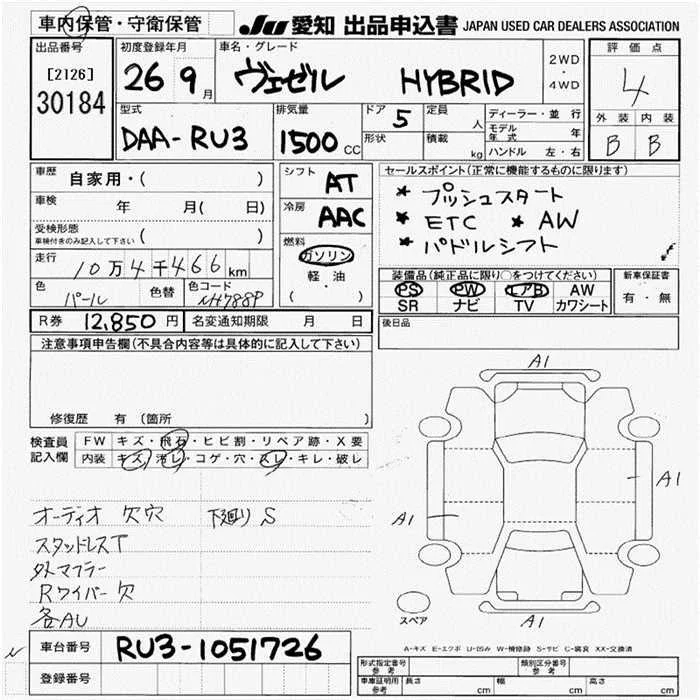 車内保管・守衛保管
JU 愛知 出品申込書 JAPAN USED CAR DEALERS ASSOCIATION
出品番号
[2126]
30184
初度登録年月
26 9月
車名・グレード
ヴェゼル HYBRID
2WD
・
4WD
評価点
4
外装 内装
B B
型式
DAA-RU3
排気量
1500 CC
ドア 5
形状
定員 人
積載 kg
ディーラー・並行
モデル年式 年
ハンドル 左・右
車歴 自家用・( )
車検 年 月( 日)
受検形態
車検付きのみ記入して下さい ( )
走行 10万4千466km
色 パール 色替 色コード NH788P
シフト AT
冷房 AAC
燃料
ガソリン
軽・油
( )
セールスポイント(正常に機能するものに限ります)
★ プッシュスタート
★ ETC ★ AW
★ パドルシフト
装備品(純正品に限り○をつけてください)
PS PW エアB AW
SR ナビ TV カワシート
新車保証書
有・無
R券 12,850円 名変通知期限 月 日
後日品
注意事項申告欄(不具合内容等は具体的に記入して下さい)
修復歴 有 (箇所 )
検査員記入欄
FW キズ・飛石・ヒビ割・リペア跡・X要
内装 キズ・汚レ・コゲ・穴・スレ・キレ・破レ
オーディオ欠穴 下廻りS
スタッドレスT
外マフラー
Rワイパー欠
各AU
A1
A1
A1
A1
スペア
A-キズ E-エクボ U-凹み W-補修跡 S-サビ C-腐食 XX-交換済
車台番号 RU3-1051726
登録番号
形式指定番号 参考 類別区分番号 参考
車庫証明用 参考 長さ cm 幅 cm 高さ cm